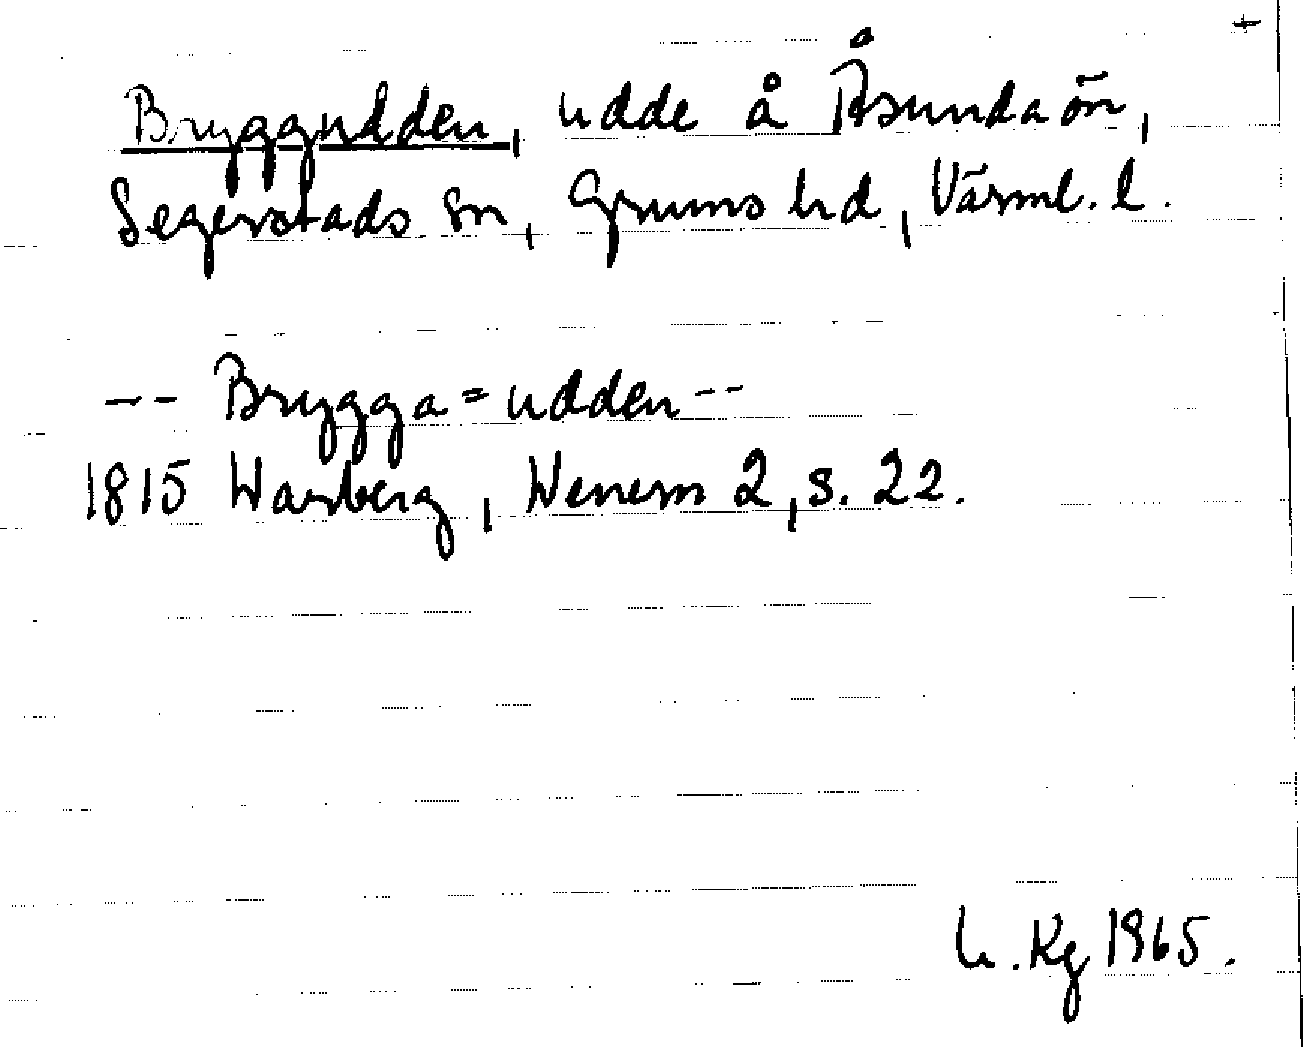 +
Bryggudden, udde å Åsundaön,
Segerstads sn, Grums hd, Värml. l.
-- Brygga=udden --
1815 Warberg, Wenern 2, s. 22.
L. Kg 1965.